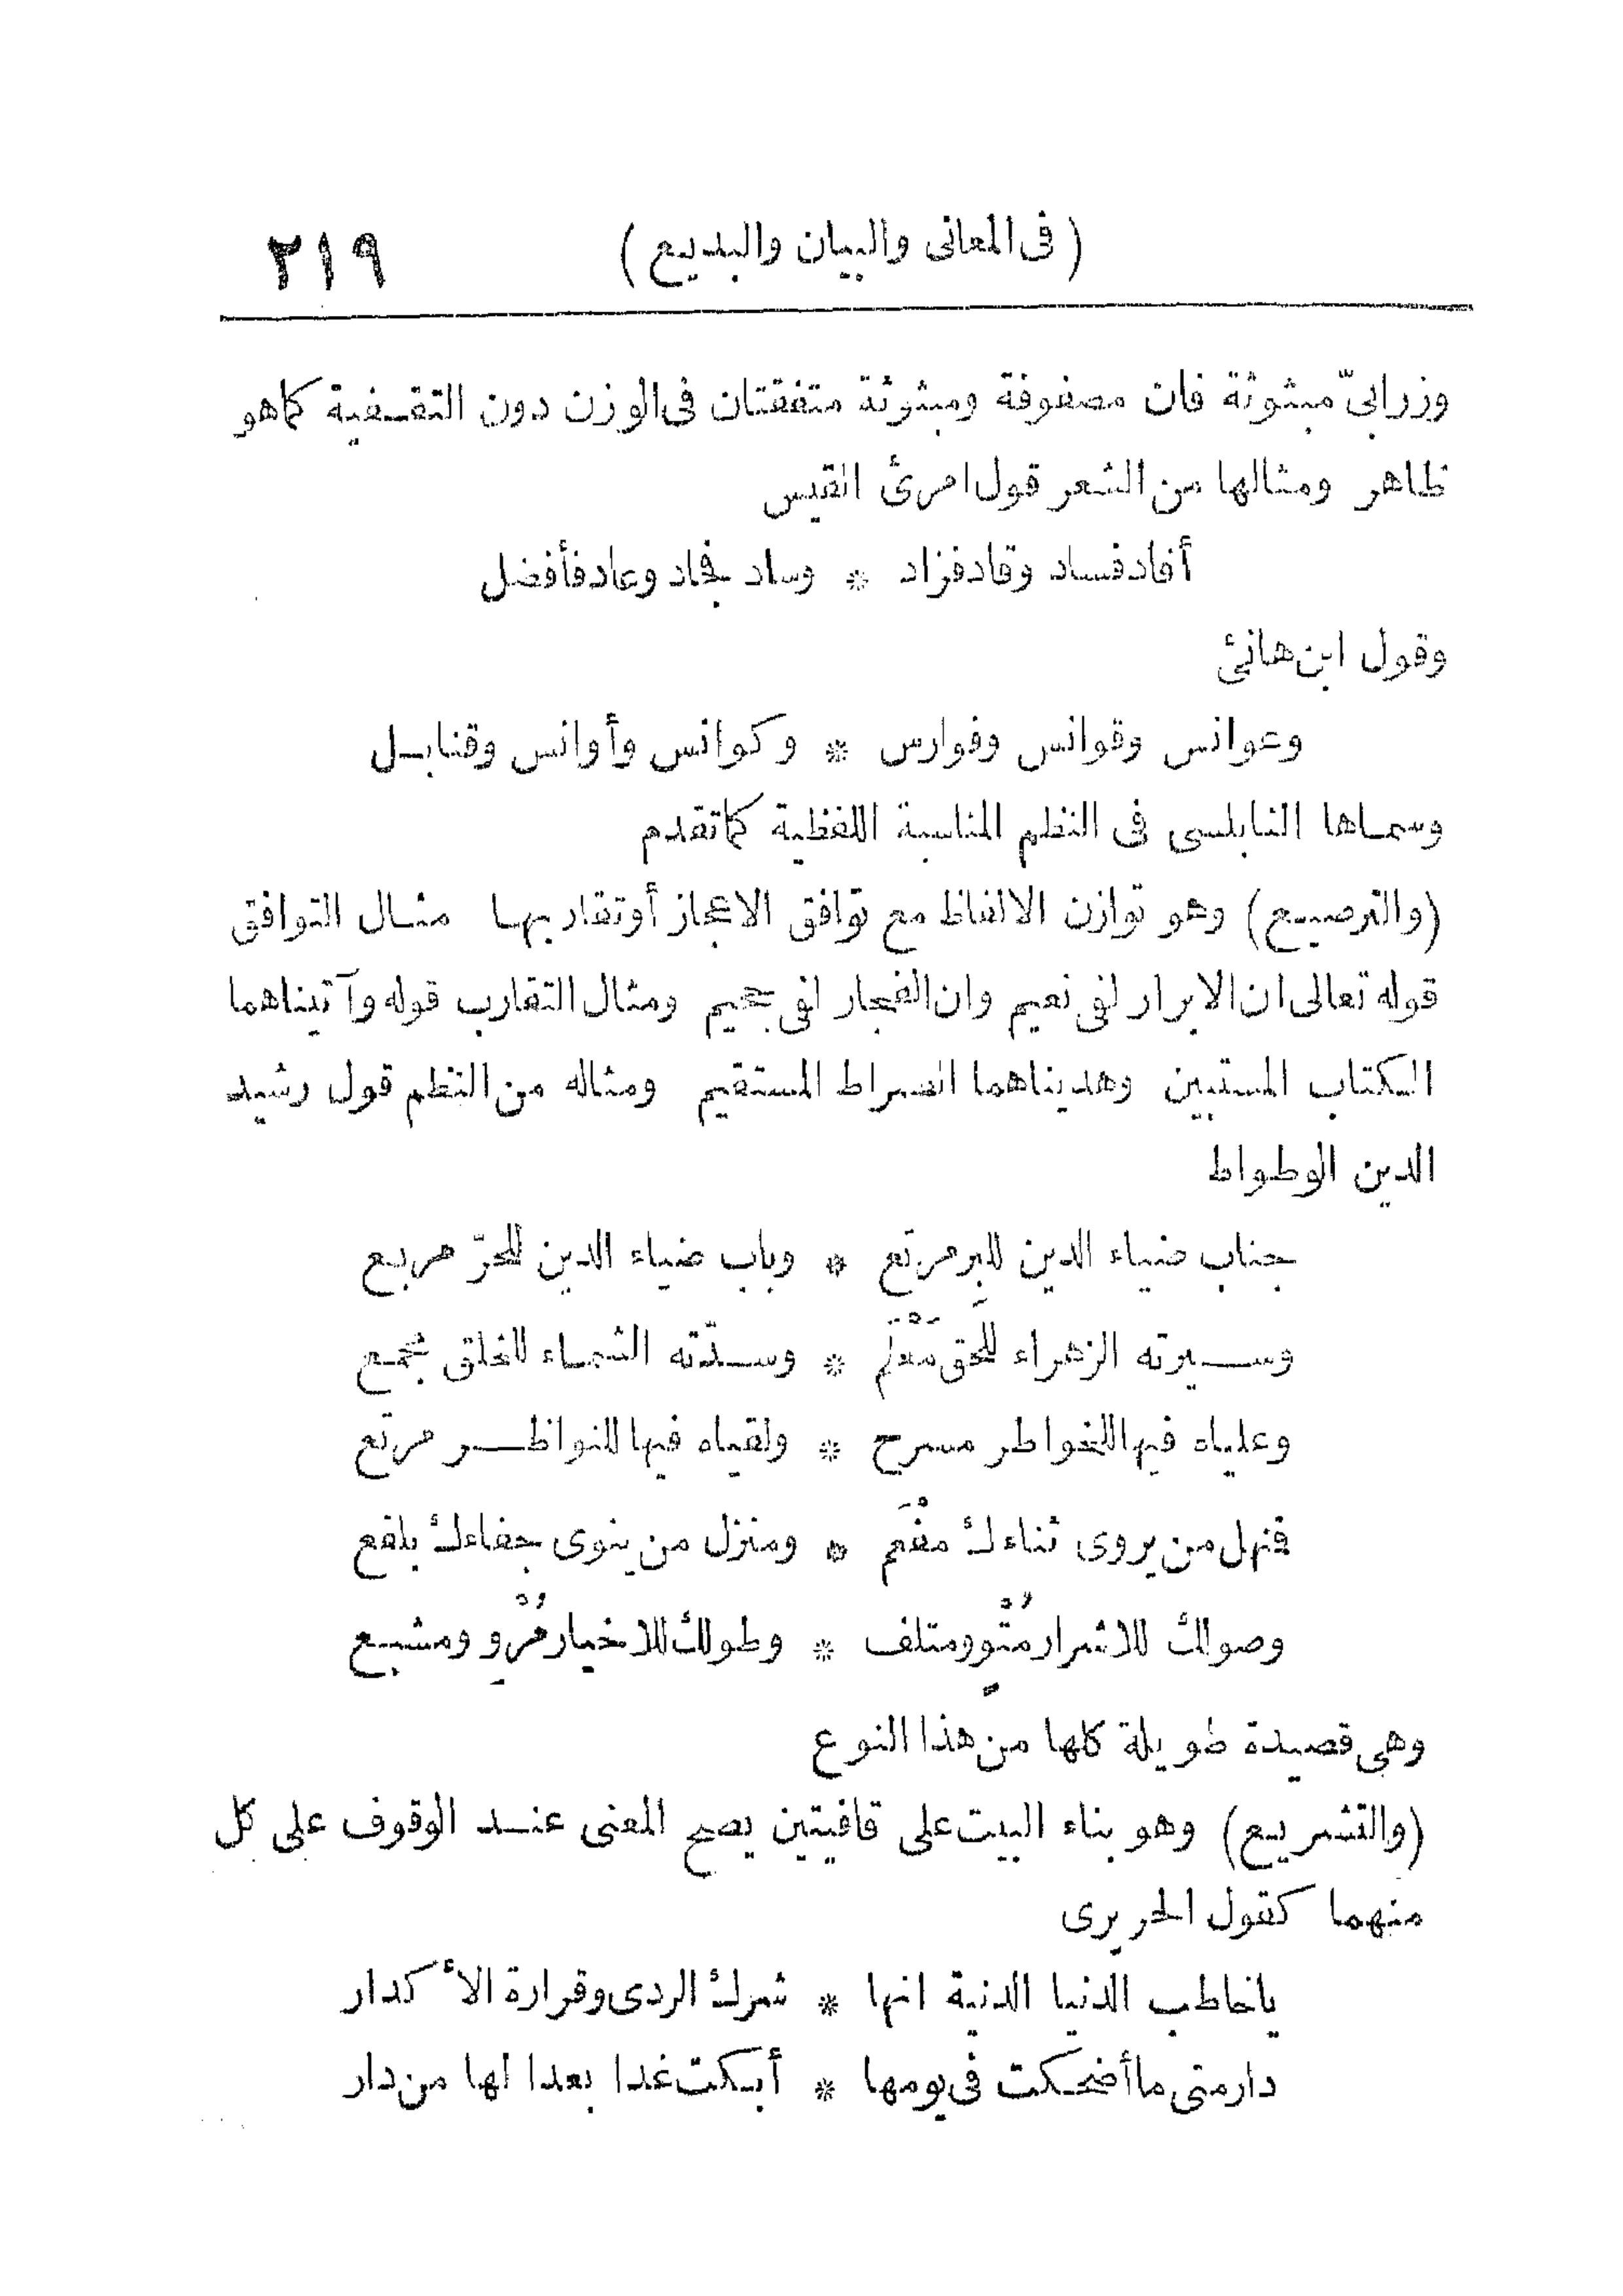 (فى المعانى والبيان والبديع) ٢١٩
وزرابىّ مبثوثة فان مصفوفة ومبثوثة متفقتان فى الوزن دون التقفية كماهو
ظاهر ومثالها من الشعر قول امرئ القيس
أفاد فساد وقاد فزاد * وساد فجاد وعاد فأفضل
وقول ابن هانئ
وعوانس وقوانس وفوارس * وكوانس وأوانس وقنابل
وسماها النابلسى فى النظم المناسبة اللفظية كماتقدم
(والترصيع) وهو توازن الالفاظ مع توافق الاعجاز أوتقاربها مثال التوافق
قوله تعالى ان الابرار لفى نعيم وان الفجار لفى جحيم ومثال التقارب قوله وآتيناهما
الكتاب المستبين وهديناهما الصراط المستقيم ومثاله من النظم قول رشيد
الدين الوطواط
جناب ضياء الدين للبِر مرتع * وباب ضياء الدين للحرّ مربع
وسيرته الزهراء للحق مَعْلَم * وسدّته الشماء للخلق مجمع
وعلياه فيها للخواطر مسرح * ولقياه فيها للنواظر مرتع
فنهل من يروى ثناءك مفْعَم * ومنزل من ينوى جفاءك بلقع
وصولك للاشرار مُتْوٍ ومتلف * وطولك للاخيار مُرْوٍ ومشبع
وهى قصيدة طويلة كلها من هذا النوع
(والتشريع) وهو بناء البيت على قافيتين يصح المعنى عند الوقوف على كل
منهما كقول الحريرى
ياخاطب الدنيا الدنية انها * شرك الردى وقرارة الأكدار
دار متى ماأضحكت فى يومها * أبكت غدا بعدا لها من دار